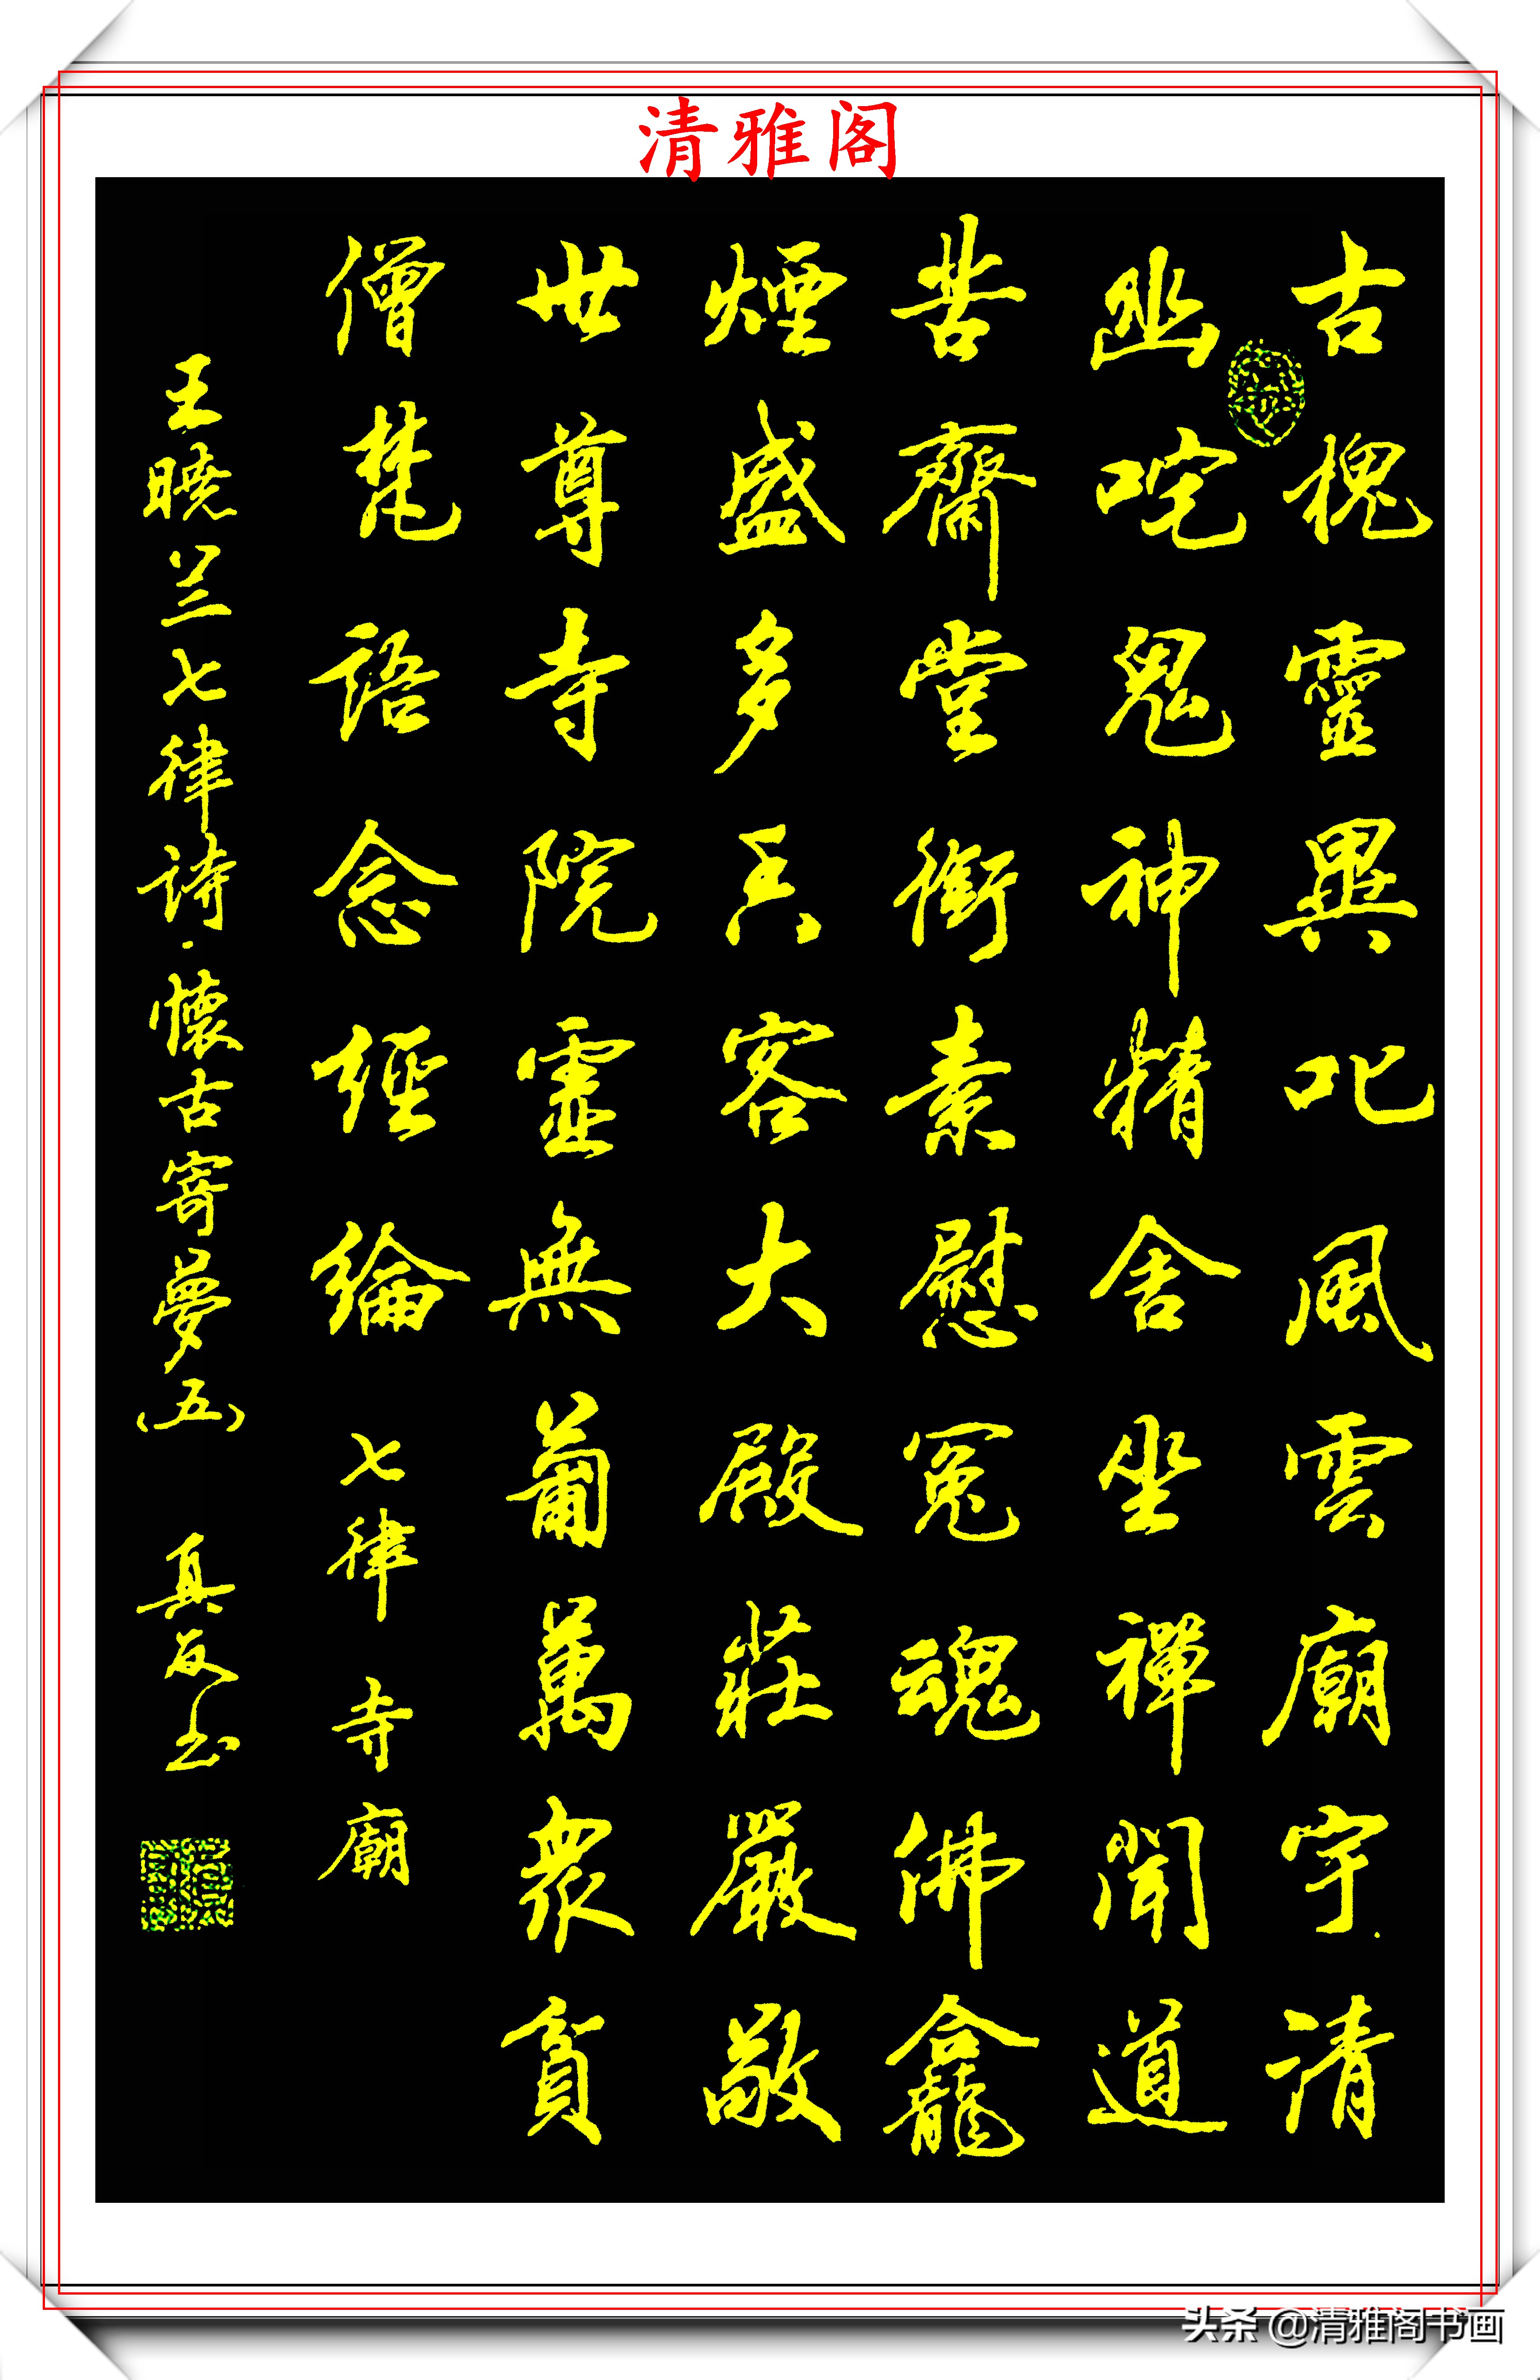 清雅阁
古槐靈異叱風雲廟宇清
幽咤鬼神精舍坐禪聞道
苦齋堂銜素慰冤魂佛龕
煙盛多客大殿莊嚴敬
世尊寺院靈無葡萬眾貪
僧梵語念經綸 七律 寺廟
王曉兰七律詩·懷古寄夢(五) 真友书
头条 @清雅阁书画